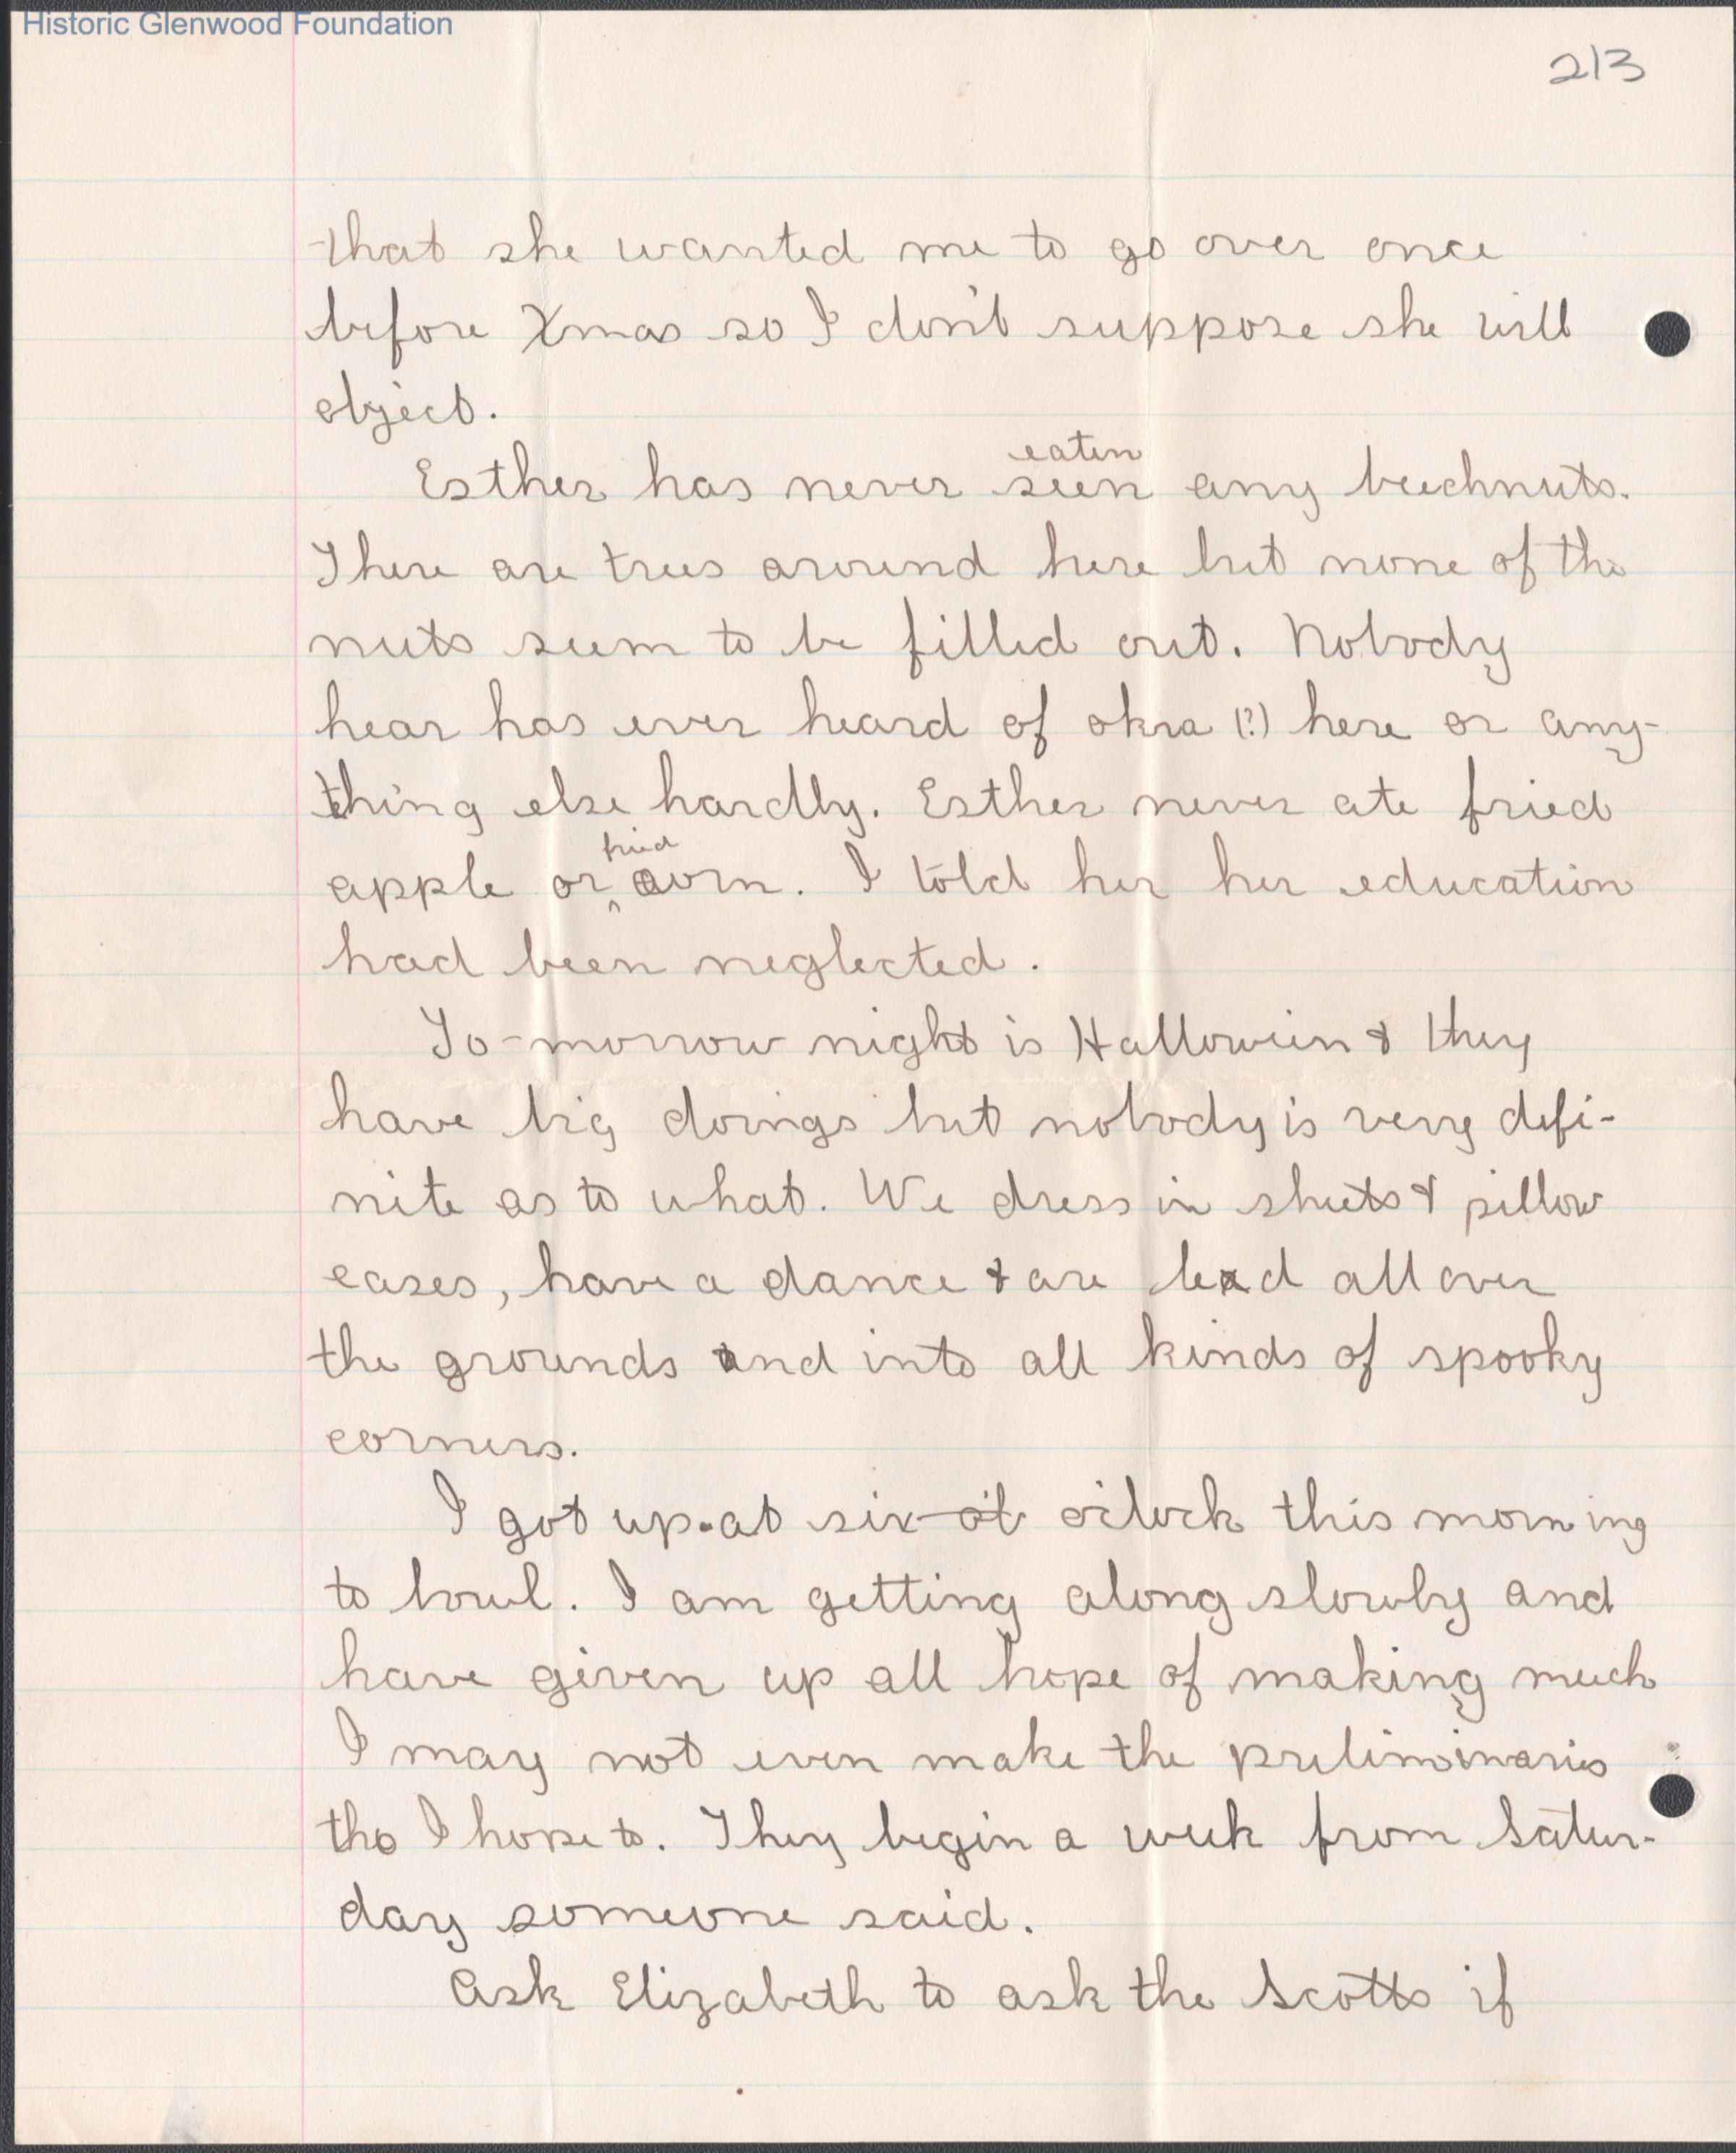 Historic Glenwood Foundation
213
that she wanted me to go over once
before Xmas so I don't suppose she will
object.
eaten
Esther has never seen any beechnuts.
There are trees around here but none of the
nuts seem to be filled out. Nobody
hear has ever heard of okra (?) here or any-
thing else hardly. Esther never ate fried
fried
apple or ^ corn. I told her her education
had been neglected.
To-morrow night is Halloween & they
have big doings but nobody is very defi-
nite as to what. We dress in sheets & pillow
cases, have a dance & are lead all over
the grounds and into all kinds of spooky
corners.
I got up at six o'c o'clock this morning
to bowl. I am getting along slowly and
have given up all hope of making much
I may not even make the preliminaries
tho I hope to. They begin a week from Satur-
day someone said.
Ask Elizabeth to ask the Scotts if